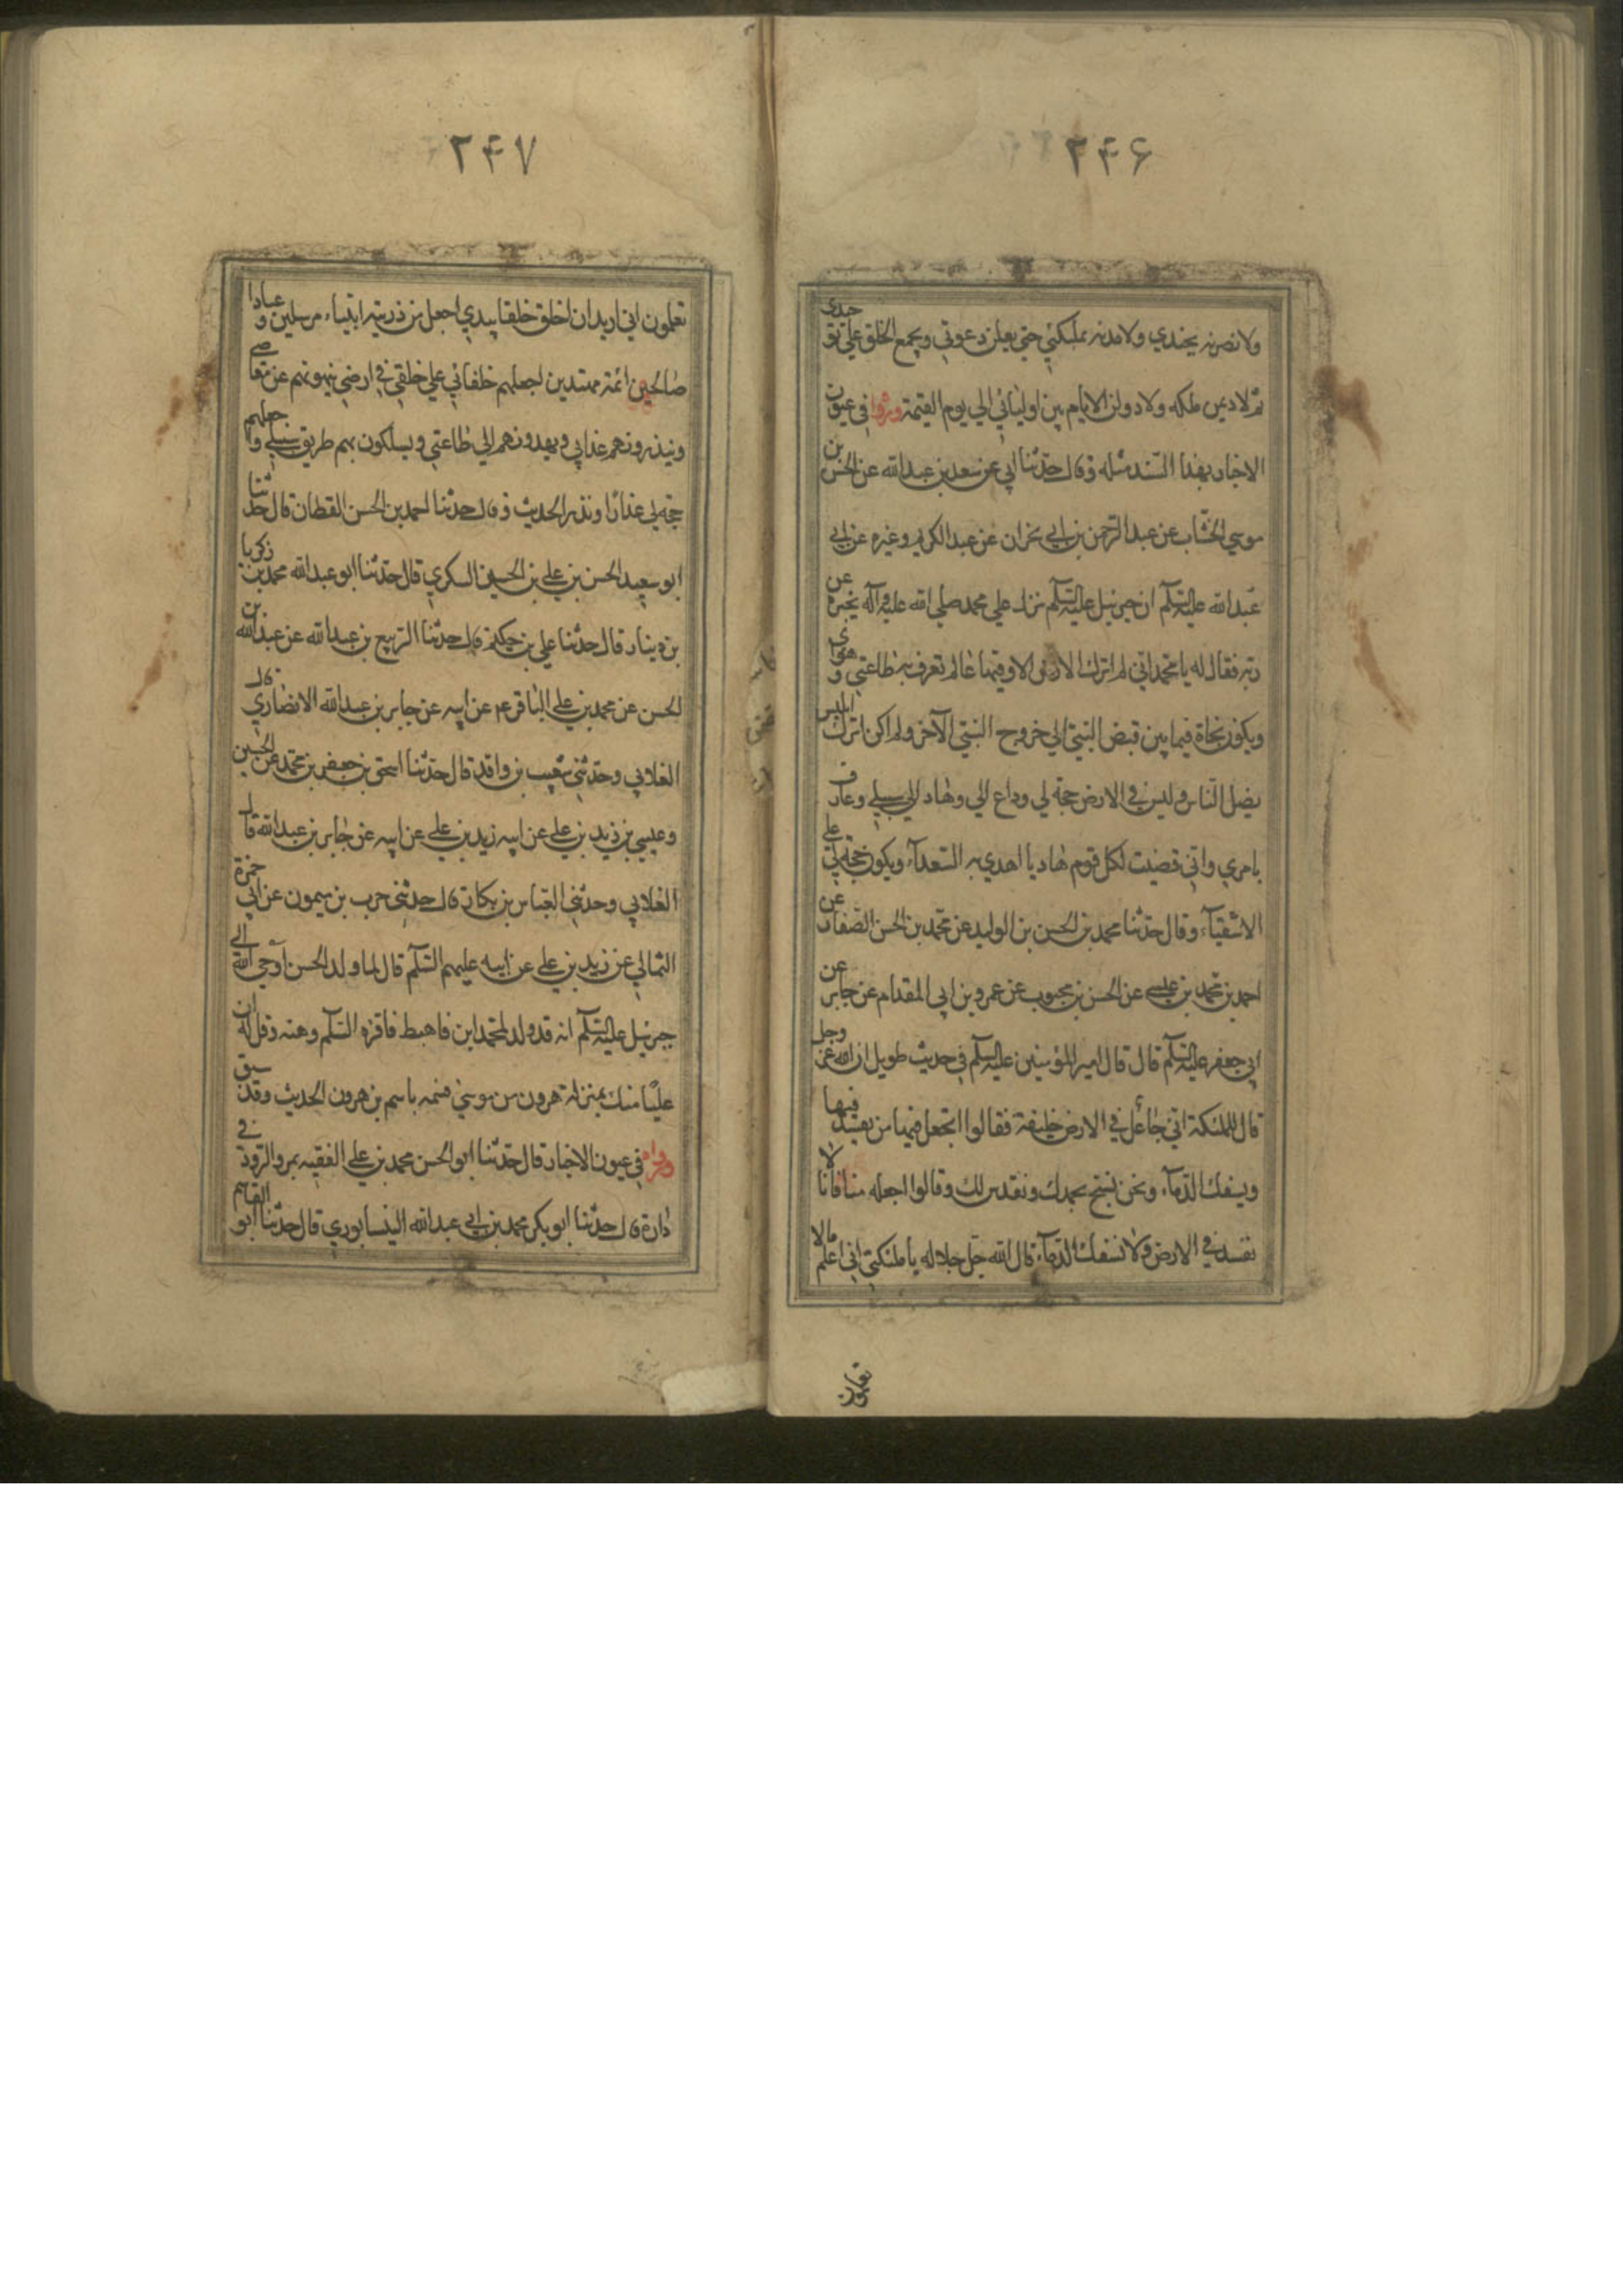 ۲۴۶
ولانصرنه بجندي ولامدنه بملئكتي حتي يعلن دعوتي ويجمع الخلق علي توحيدي
ثم لاديمن ملكه ولاداولن الايام بين اوليائي الي يوم القيمة ورواه في عيون
الاخبار بهذا السند مثله وقال حدثنا ابي عن سعد بن عبد الله عن الحسن بن
موسي الخشاب عن عبد الرحمن بن ابي نجران عن عبد الكريم وغيره عن ابي
عبد الله عليه السلم ان جبرئيل عليه السلم نزل علي محمد صلي الله عليه وآله يخبره عن
ربه فقال له يا محمد اني لم اترك الارض الا وفيها عالم تعرف به طاعتي وهواي
ويكون نجاة فيما بين قبض النبي الي خروج النبي الآخر ولم اكن اترك ابليس
يضل الناس وليس في الارض حجة لي وداع الي وهاد الي سبيلي وعارف
بامري واني قضيت لكل قوم هاديا اهدي به السعدآء ويكون حجة لي علي
الاشقيآء وقال حدثنا محمد بن الحسن بن الوليد عن محمد بن الحسن الصفار عن
احمد بن محمد بن عيسي عن الحسن بن محبوب عن عمرو بن ابي المقدام عن جابر عن
ابي جعفر عليه السلم قال قال امير المؤمنين عليه السلم في حديث طويل ان الله عز وجل
قال للملئكة اني جاعل في الارض خليفة فقالوا اتجعل فيها من يفسد فيها
ويسفك الدمآء ونحن نسبح بحمدك ونقدس لك وقالوا اجعله منا فانا لا
نفسد في الارض ولا نسفك الدمآء قال الله جل جلاله يا ملئكتي اني اعلم مالا
تعلمون
۲۴۷
تعلمون اني اريد ان اخلق خلقا بيدي اجعل من ذريته انبياء مرسلين وعبادا
صالحين ائمة مهتدين اجعلهم خلفائي علي خلقي في ارضي ينهونهم عن معاصي
وينذرونهم عذابي ويهدونهم الي طاعتي ويسلكون بهم طريق سبيلي واجعلهم
حجة لي عذرا او نذرا الحديث وقال حدثنا احمد بن الحسن القطان قال حدثنا
ابو سعيد الحسن بن علي بن الحسين السكري قال حدثنا ابو عبد الله محمد بن زكريا
بن دينار قال حدثنا علي بن حكيم قال حدثنا الربيع بن عبد الله عن عبد الله بن
الحسن عن محمد بن علي الباقر عم عن ابيه عن جابر بن عبد الله الانصاري قال
الغلابي وحدثني شعيب بن واقد قال حدثنا اسحق بن جعفر بن محمد عن الحسين
وعيسي بن زيد بن علي عن ابيه زيد بن علي عن ابيه عن جابر بن عبد الله قال
الغلابي وحدثني العباس بن بكار قال حدثني حرب بن ميمون عن ابي حمزة
الثمالي عن زيد بن علي عن ابيه عليهم السلم قال لما ولد الحسن اوحي الله الي
جبرئيل عليه السلم انه قد ولد لمحمد ابن فاهبط فاقرئه السلم وهنه وقل له ان
عليا منك بمنزلة هرون من موسي فسمه باسم بن هرون الحديث وقد سبق
ورواه في عيون الاخبار قال حدثنا ابو الحسن محمد بن علي الفقيه بمرو الرود في
داره قال حدثنا ابو بكر محمد بن ابي عبد الله النيسابوري قال حدثنا ابو القاسم